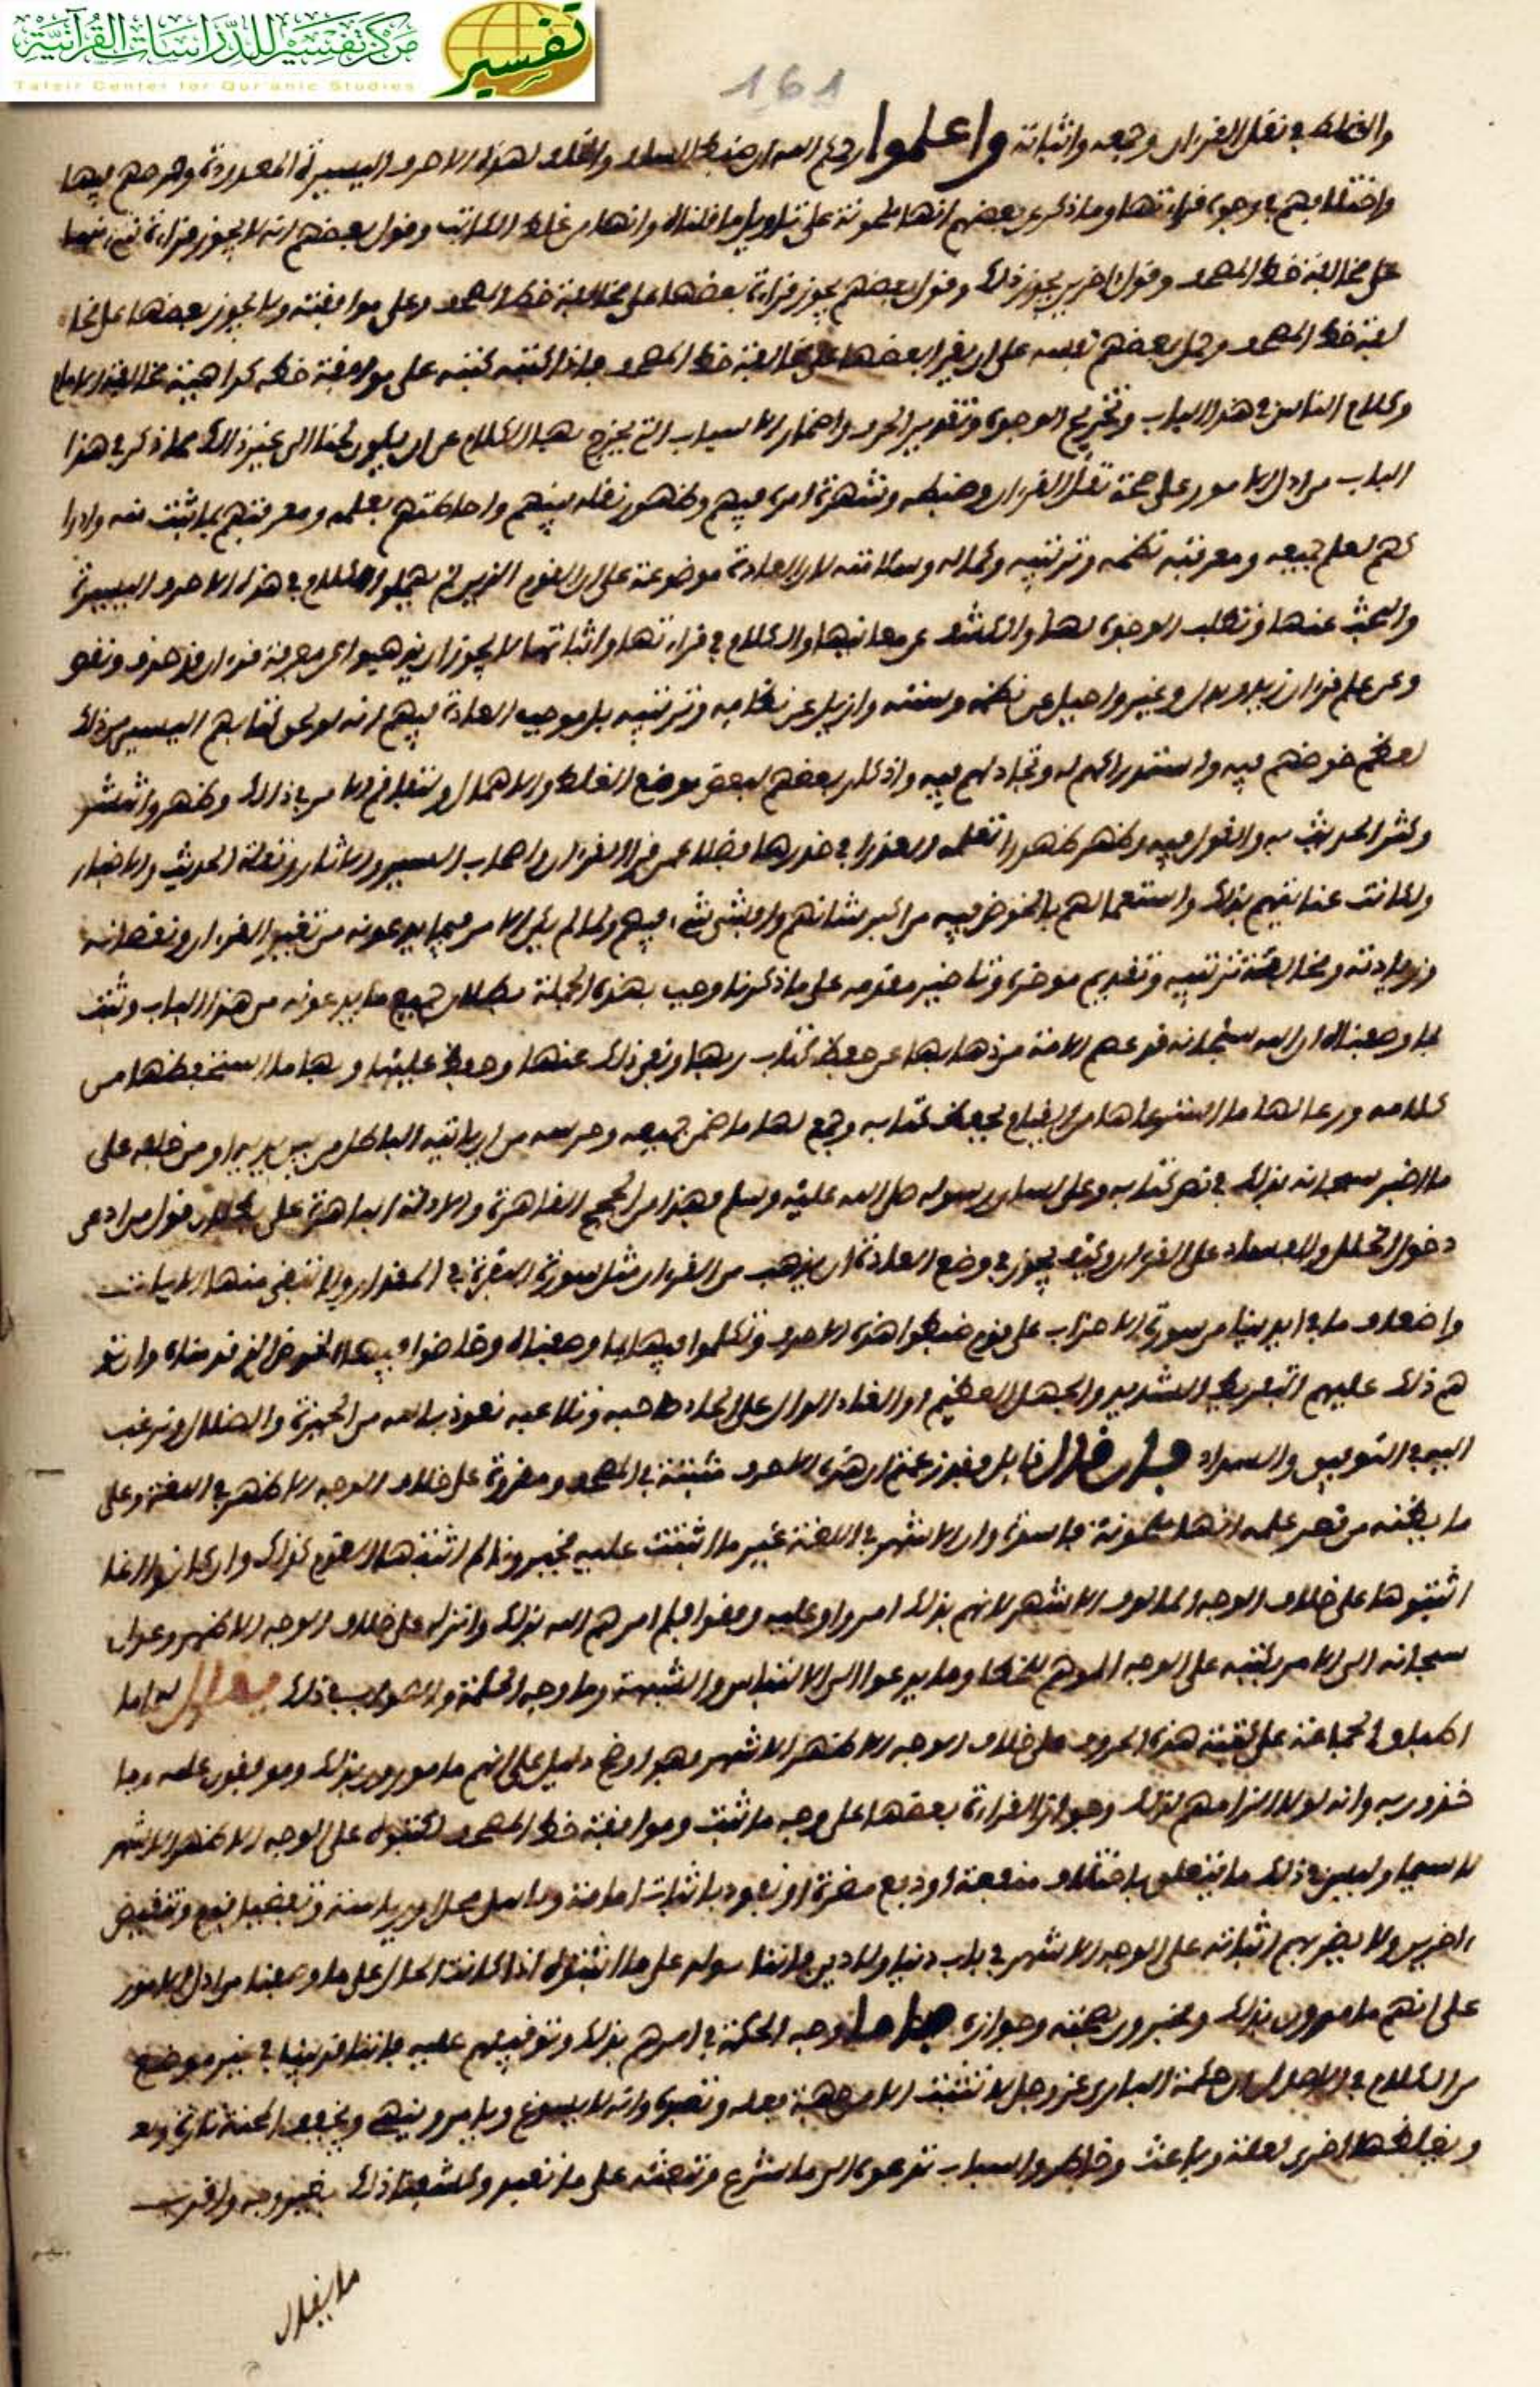 مركز تفسير للدراسات القرآنية
Tafsir Center for Qur'anic Studies
تفسير
161
والغلط في نقل القرءان وجمعه واثباته واعلموا رحمكم الله ان ضبط السلف والخلف لهذه الاحرف اليسيرة المعدودة وخوضهم فيها
واختلافهم في وجوه قراءتها وما ذكر عن بعضهم انها ملحونة على تاويل ما قلناه وانها من غلط الكاتب وقول بعضهم انه لا يجوز قراءة شيء منها
على مخالفة خط المصحف وقول اخرين يجوز ذلك وقول بعضهم يجوز قراءة بعضها على مخالفة خط المصحف وعلى موافقته ولا يجوز بعضها على مخا
لفة خط المصحف وحمل بعضهم نفسه على ان يقرا بعضها على مخالفة خط المصحف فاذا كتبه كتبه على موافقة خطه كراهية مخالفة الامام
وكلام الناس في هذا الباب وتخريج الوجوه وتقدير الحروف واضمار الاسباب التي يخرج بها الكلام عن ان يكون لحنا الى غير ذلك مما ذكر في هذا
الباب من ادل الامور على صحة نقل القرءان وضبطه وشهرة امره فيهم وظهور نقله بينهم واحاطتهم بعلمه ومعرفتهم بما ثبت منه وادرا
كهم لعلم جميعه ومعرفة نظمه وترتيبه وكماله وسلامته لان العادة موضوعة على ان القوم الذين لم يهملوا الكلام في هذه الاحرف اليسيرة
والبحث عنها وتطلب الوجوه لها والكشف عن معانيها والكلام في قراءتها واثباتها لا يجوز ان يذهبوا عن معرفة قرءان قد حذف ونقص
وعن علم قرءان زيد وبدل وغير واحيل عن نظمه وسننه وازيل عن نظامه وترتيبه بل موجب العادة فيهم انه لو عن لهم اليسير من ذلك
لعظم خوضهم فيه واستدراكهم له وتجادلهم فيه واذكار بعضهم لبعض موضع الغلط والاهمال وتفاقم الامر في ذلك وظهر وانتشر
وكثر الحديث به والقول فيه وظهر ظهورا تعلمه العذرا في خدرها فضلا عن قراء القرءان واصحاب السير والاثار ونقلة الحديث والاخبار
ولكانت عنايتهم بذلك واستعمالهم بالخوض فيه من اكبر شانهم وافشى شيء فيهم ولما لم يكن الامر فيما يدعونه من تغيير القرءان ونقصانه
وزيادته ومخالفة ترتيبه وتقديم موخره وتاخير مقدمه على ما ذكرنا وجب بهذه الجملة بطلان جميع ما يدعونه من هذا الباب وثبت
بما وصفناه ان الله سبحانه قد عصم الامة من ذهابها عن حفظ كتاب ربها ونفى ذلك عنها وحفظ عليها وبها ما استحفظها من
كلامه ورعا لها ما استرعاها من القيام بحفظ كتابه وجمع لها ما ضمن جميعه وحرسه من ان ياتيه الباطل من بين يديه او من خلفه على
ما اخبر سبحانه بذلك في نص كتابه وعلى لسان رسوله صلى الله عليه وسلم فهذا من الحجج القاهرة والادلة الباهرة على بطلان قول من ادعى
دخول الخلل والفساد على القرءان وكيف يجوز في وضع العادة ان يذهب من القرءان مثل سورة البقرة في المقدار ولا تبقى منها الا ايات
واضعاف ما في ايدينا من سورة الاحزاب على قوم ضبطوا هذه الاحرف وتكلموا فيها بما وصفناه وخاضوا فيها الخوض الذي قدمناه وان نتو
هم ذلك عليهم التفريط الشديد والجهل العظيم او القاه الوال على الحاد صاحبه وتلاعبه نعوذ بالله من الحيرة والضلال ونرغب
اليه في التوفيق والسداد فان قال قائل فقد زعمتم ان هذه الاحرف مثبتة في المصحف ومقروة على خلاف الوجه الاظهر في اللغة وعلى
ما يظنه من قصر علمه انها ملحونة فاسدة وان الاشهر في اللغة غير ما اثبتت عليه فخبرونا لم اثبتها القوم كذلك وان كانوا انما
اثبتوها على خلاف الوجه المالوف الاشهر لانهم بذلك امروا وعليه وقفوا فلم امرهم الله بذلك وانزله على خلاف الوجه الاظهر وعدل
سبحانه الى الامر بكتبه على الوجه الموهم للخطا وما يدعوا الى الالتباس والشبهة وما وجه الحكمة والصواب في ذلك يقال له اما
اطباق الجماعة على كتبة هذه الحروف على خلاف الوجه الاظهر الاشهر فهو اوضح دليل على انهم مامورون بذلك وموقفون عليه وما
خذون به وانه لولا الزامهم لذلك وجواز القراءة بعضها على وجه ما ثبت وموافقة خط المصحف لكتبوه على الوجه الاظهر الاشهر
لا سيما وليس في ذلك ما يتعلق باختلاف منفعة او دفع مضرة او يعود باثبات امامة وتاهيل محل ورياسة وتفضيل قوم وتنقيص
اخرين ولا يضر بهم اثباته على الوجه الاشهر في باب دنيا ولا دين فاتفاقهم على ما اثبتوه اذا كانت الحال على ما وصفنا من ادل الامور
على انهم مامورون بذلك ومخبرون بصحته وجوازه فاما وجه الحكمة في امرهم بذلك وتوقيفهم عليه فاننا قد بينا في غير موضع
من الكلام في الاصول ان حكمة الباري عز وجل لا تثبت الا من جهة فعله وتصوره وانه لا يسوغ ويامر وينهى ويخفف المحنة تارة
ويغلظها اخرى لعلة وباعث وخاطر واسباب تدعوه الى ما شرع وتبعثه على ما تعبد وكشفنا ذلك بغير وجه واقرب
ما يقال